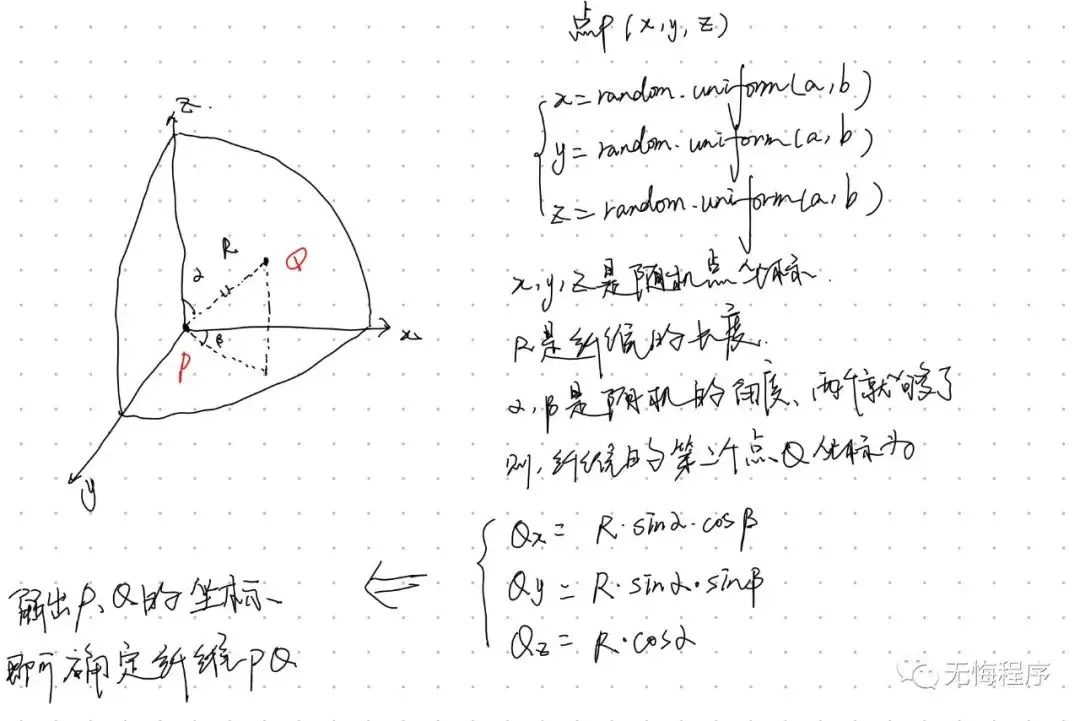 点P(x,y,z)
x=random.uniform(a,b)
y=random.uniform(a,b)
z=random.uniform(a,b)
x,y,z是随机点坐标.
R是纤维的长度.
α,β是随机的角度、两个就够了
则,纤维的第二个点Q坐标为
Qx= R·sinα·cosβ
Qy= R·sinα·sinβ
Qz= R·cosα
解出P、Q的坐标、
即可确定纤维PQ
z
R
Q
α
x
β
P
y
无悔程序